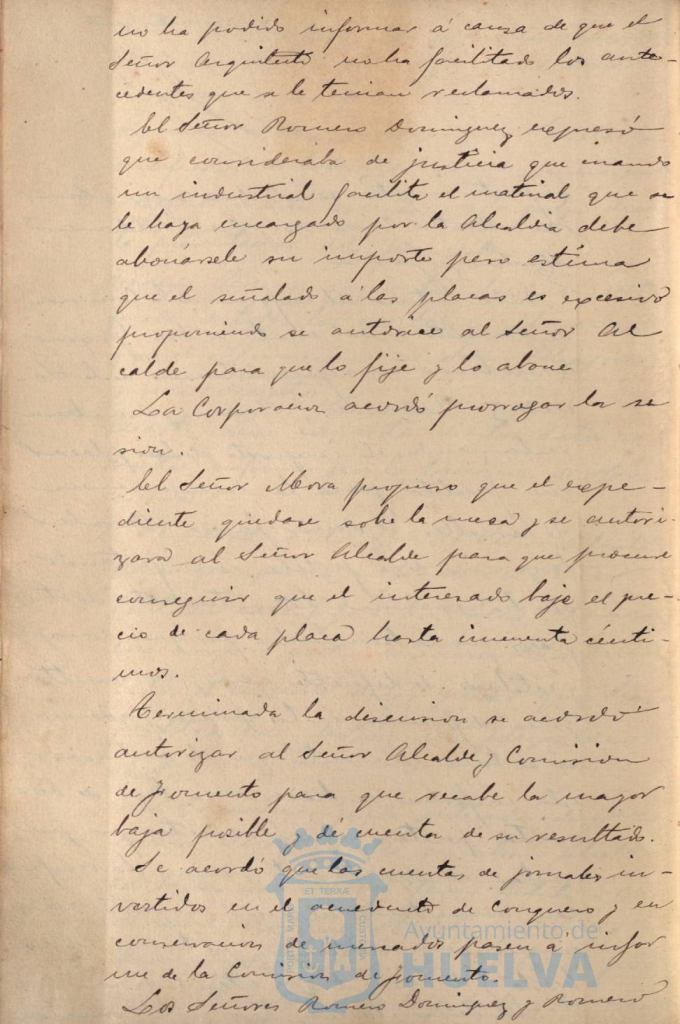 no ha podido informar á causa de que el
Señor Arquitecto no ha facilitado los ante-
cedentes que se le tenian reclamados.
El Señor Romero Dominguez expresó
que consideraba de justicia que cuando
un industrial facilita el material que se
le haya encargado por la Alcaldia debe
abonársele su importe pero estima
que el señalado á las placas es excesivo
proponiendo se autorice al Señor Al
calde para que lo fije y lo abone
La Corporacion acordó prorrogar la se
sion.
El Señor Mora propuso que el expe-
diente quedase sobre la mesa y se autori-
zara al Señor Alcalde para que procure
conseguir que el interesado baje el pre-
cio de cada placa hasta cincuenta cénti-
mos.
Terminada la discusion se acordó
autorizar al Señor Alcalde y Comision
de Fomento para que recabe la mayor
baja posible y dé cuenta de su resultado.
Se acordó que las cuentas de jornales in-
vertidos en el acueducto de Conquero y en
conservacion de mercados pasen á infor
me de la Comision de Fomento.
Los Señores Romero Dominguez y Romero
ET TERRÆ
Ayuntamiento de
HUELVA